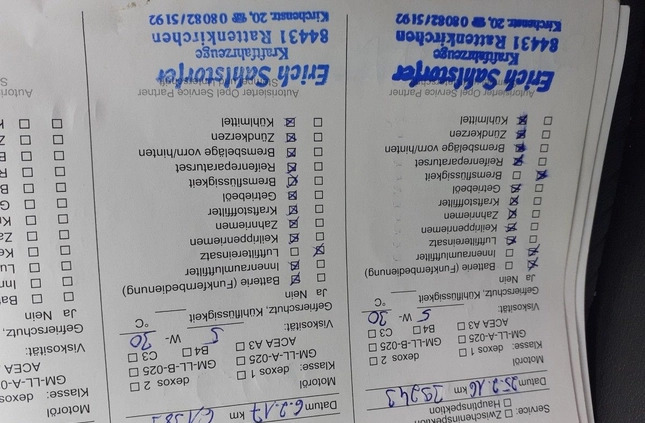 Service: Zwischeninspektion
Hauptinspektion
Datum 25.2.16 km
Motoröl
Klasse: dexos 1 dexos 2
GM-LL-A-025 GM-LL-B-025
ACEA A3 B4 C3
Viskosität: 5 W- 30
Gefrierschutz, Kühlflüssigkeit °C
Ja Nein
Batterie (Funkfernbedienung)
Innenraumluftfilter
Luftfiltereinsatz
Keilrippenriemen
Zahnriemen
Kraftstofffilter
Getriebeöl
Bremsflüssigkeit
Reifenreparaturset
Bremsbeläge vorn/hinten
Zündkerzen
Kühlmittel
Autorisierter Opel Service Partner
Erich Sahlstorfer
Kraftfahrzeuge
84431 Rattenkirchen
Kirchenstr. 20, ☎ 08082/5192
Datum 6.2.17 km
Motoröl
Klasse: dexos 1 dexos 2
GM-LL-A-025 GM-LL-B-025
ACEA A3 B4 C3
Viskosität: 5 W- 30
Gefrierschutz, Kühlflüssigkeit °C
Ja Nein
Batterie (Funkfernbedienung)
Innenraumluftfilter
Luftfiltereinsatz
Keilrippenriemen
Zahnriemen
Kraftstofffilter
Getriebeöl
Bremsflüssigkeit
Reifenreparaturset
Bremsbeläge vorn/hinten
Zündkerzen
Kühlmittel
Autorisierter Opel Service Partner
Erich Sahlstorfer
Kraftfahrzeuge
84431 Rattenkirchen
Kirchenstr. 20, ☎ 08082/5192
Motoröl
Klasse: dexos
GM-LL-A-0
ACEA
Viskosität:
Gefrierschutz,
Ja Nein